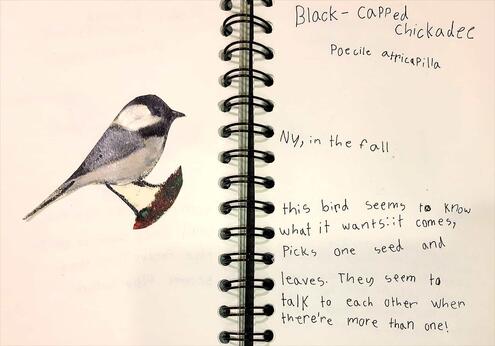 Black-Capped
Chickadee
Poecile atricapilla
NY, in the fall
this bird seems to know
what it wants::it comes,
Picks one seed and
leaves. They seem to
talk to each other when
there're more than one!